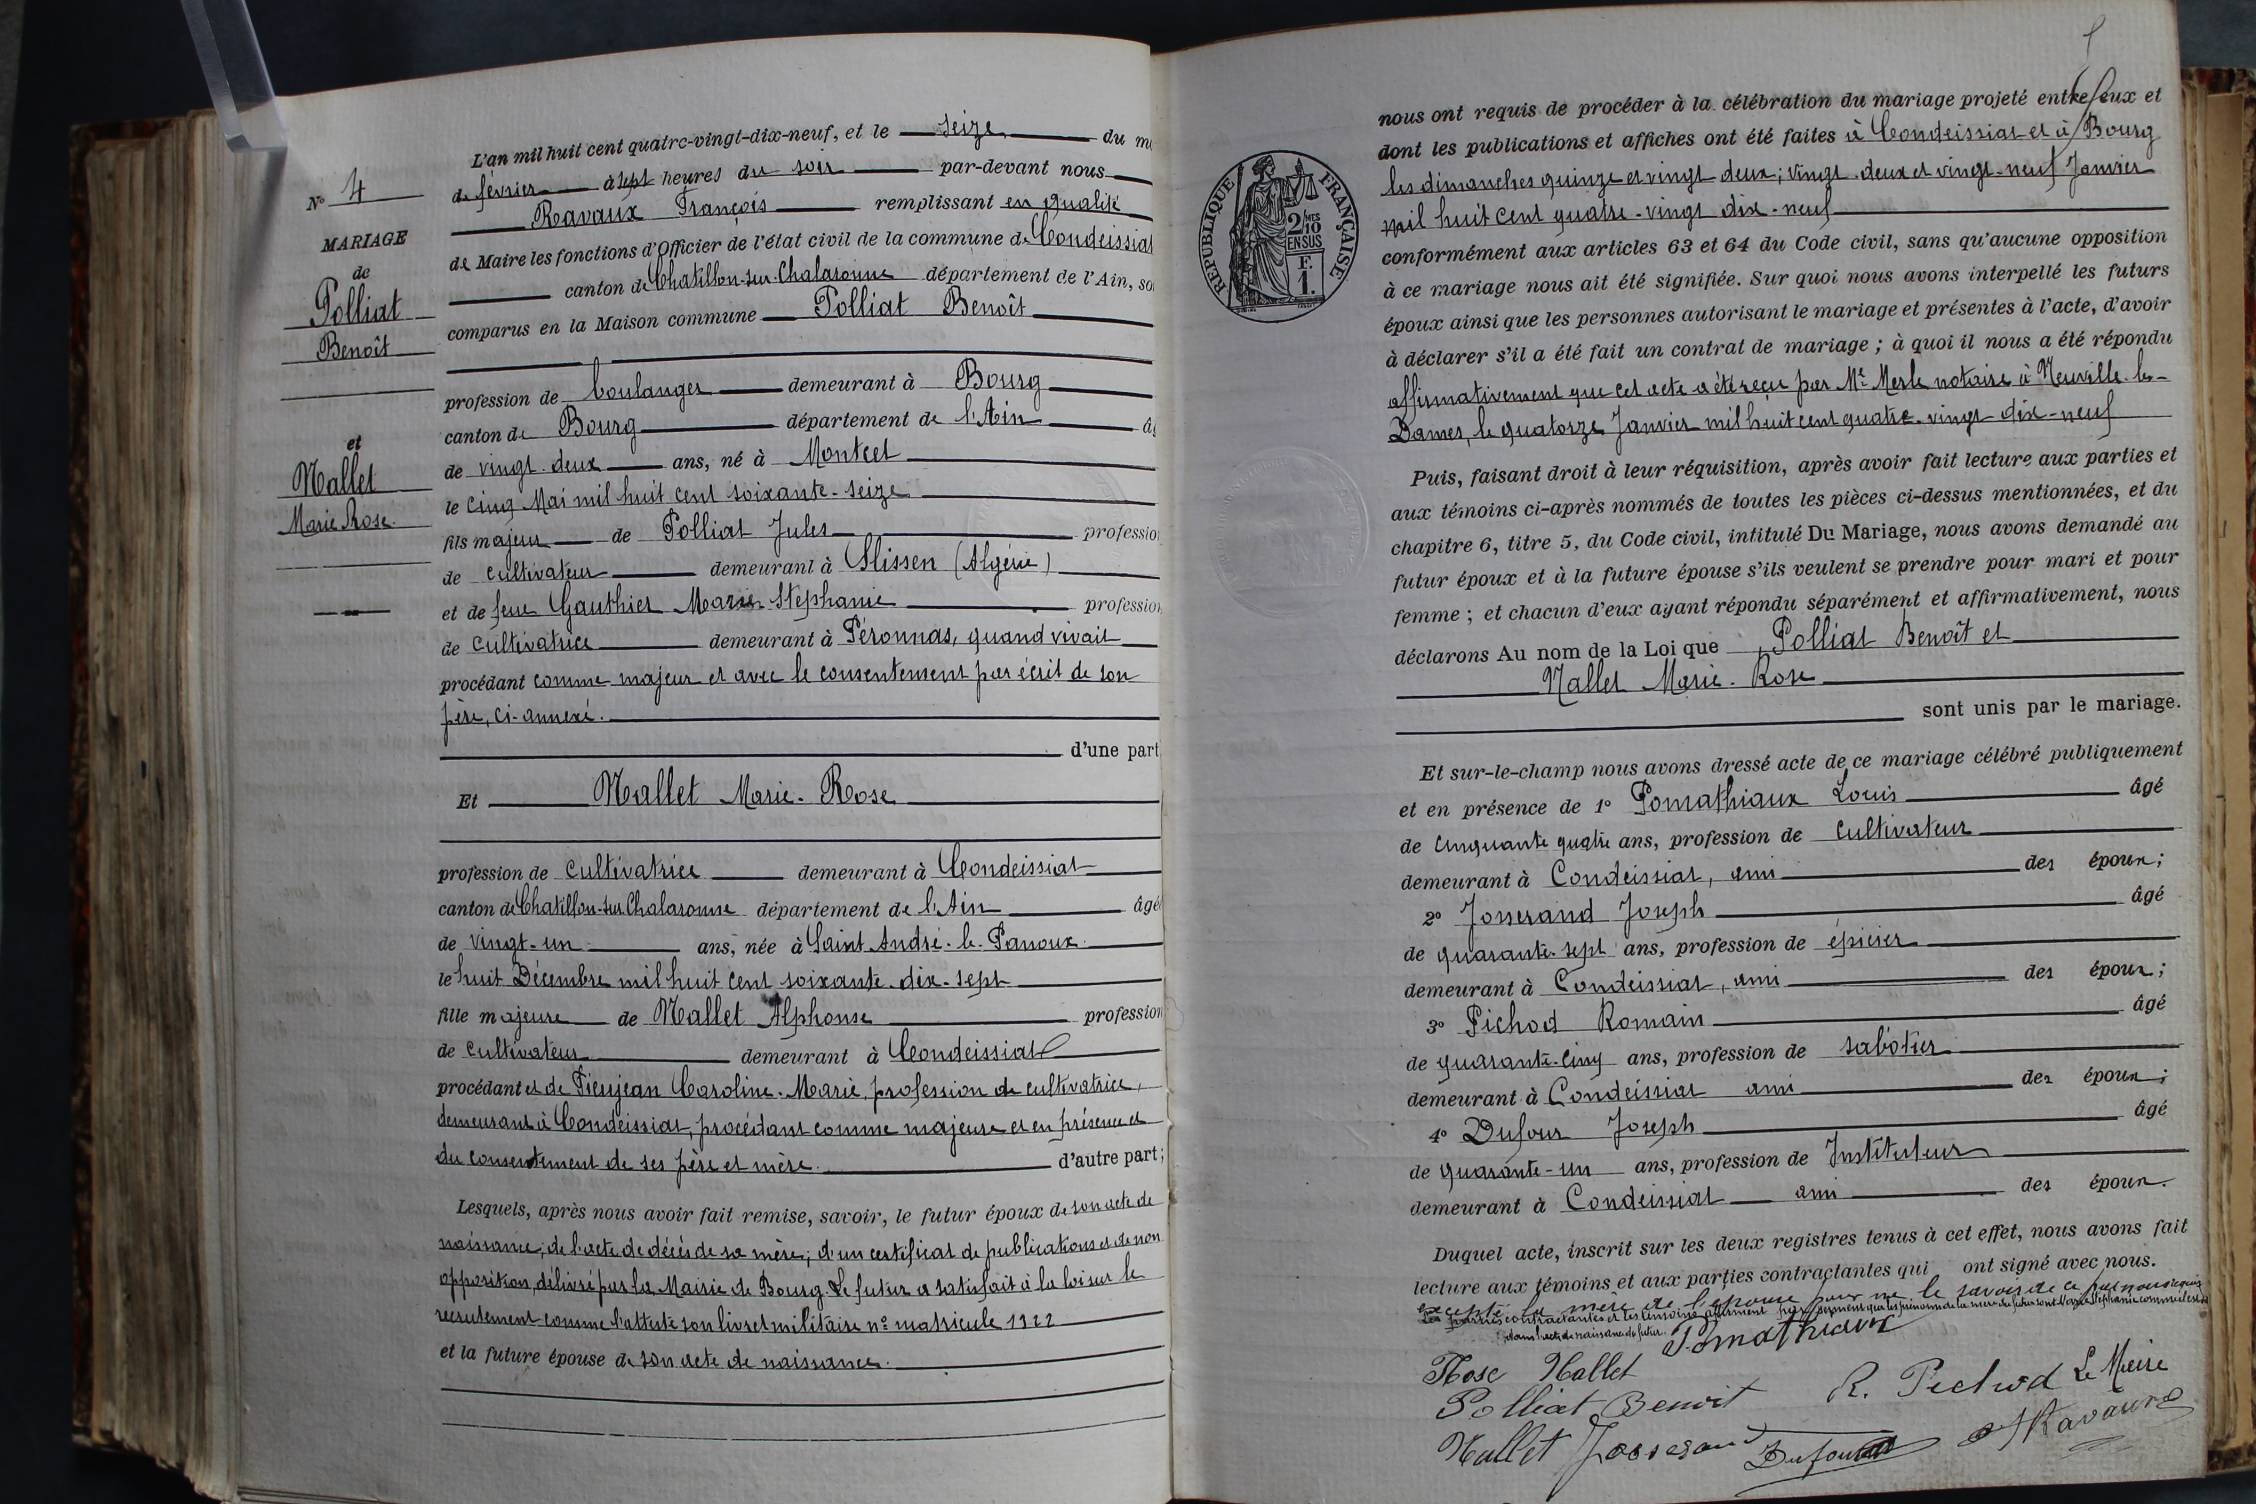 N° 4
MARIAGE
de
Polliat
Benoît
et
Mallet
Marie Rose.
L'an mil huit cent quatre-vingt-dix-neuf, et le seize du m
de février à sept heures du soir par-devant nous
Ravaux François remplissant en qualité
de Maire les fonctions d'Officier de l'état civil de la commune de Condeissiat
canton de Chatillon-sur-Chalaronne département de l'Ain, so
comparus en la Maison commune Polliat Benoît
profession de boulanger demeurant à Bourg
canton de Bourg département de l'Ain âg
de vingt-deux ans, né à Montcet
le cinq Mai mil huit cent soixante-seize
fils majeur de Polliat Jules profession
de cultivateur demeurant à Slissen (Algérie)
et de feue Gauthier Marie Stephanie profession
de cultivatrice demeurant à Péronnas, quand vivait
procédant comme majeur et avec le consentement par écrit de son
père, ci-annexé.
d'une part
Et Mallet Marie-Rose
profession de cultivatrice demeurant à Condeissiat
canton de Chatillon-sur-Chalaronne département de l'Ain âgé
de vingt-un ans, née à Saint André-le-Panoux
le huit Décembre mil huit cent soixante-dix-sept
fille majeure de Mallet Alphonse profession
de cultivateur demeurant à Condeissiat
procédant et de Caroline-Marie, profession de cultivatrice,
demeurant à Condeissiat, procédant comme majeure et en présence et
du consentement de ses père et mère. d'autre part;
Lesquels, après nous avoir fait remise, savoir, le futur époux de son acte de
naissance; de l'acte de décès de sa mère; d'un certificat de publications et de non
opposition, délivré par la Mairie de Bourg. Le futur a satisfait à la loi sur le
recrutement comme l'atteste son livret militaire n° matricule 1922
et la future épouse de son acte de naissance.
RÉPUBLIQUE FRANÇAISE
2/10 MES
EN SUS
F.
1.
nous ont requis de procéder à la célébration du mariage projeté entre eux et
dont les publications et affiches ont été faites à Condeissiat et à Bourg
les dimanches quinze et vingt deux; vingt-deux et vingt-neuf Janvier
mil huit cent quatre-vingt dix-neuf
conformément aux articles 63 et 64 du Code civil, sans qu'aucune opposition
à ce mariage nous ait été signifiée. Sur quoi nous avons interpellé les futurs
époux ainsi que les personnes autorisant le mariage et présentes à l'acte, d'avoir
à déclarer s'il a été fait un contrat de mariage; à quoi il nous a été répondu
affirmativement que cet acte a été reçu par Me Merle notaire à Neuville-les-
Dames, le quatorze Janvier mil huit cent quatre-vingt-dix-neuf
Puis, faisant droit à leur réquisition, après avoir fait lecture aux parties et
aux témoins ci-après nommés de toutes les pièces ci-dessus mentionnées, et du
chapitre 6, titre 5, du Code civil, intitulé Du Mariage, nous avons demandé au
futur époux et à la future épouse s'ils veulent se prendre pour mari et pour
femme; et chacun d'eux ayant répondu séparément et affirmativement, nous
déclarons Au nom de la Loi que Polliat Benoît et
Mallet Marie-Rose
sont unis par le mariage.
Et sur-le-champ nous avons dressé acte de ce mariage célébré publiquement
et en présence de 1° Pomathiaux Louis âgé
de cinquante quatre ans, profession de cultivateur
demeurant à Condeissiat, ami des époux;
2° Josserand Joseph âgé
de quarante-sept ans, profession de épicier
demeurant à Condeissiat, ami des époux;
3° Pichod Romain âgé
de quarante-cinq ans, profession de sabotier
demeurant à Condeissiat ami des époux;
4° Dufour Joseph âgé
de quarante-un ans, profession de Instituteur
demeurant à Condeissiat ami des époux.
Duquel acte, inscrit sur les deux registres tenus à cet effet, nous avons fait
lecture aux témoins et aux parties contractantes qui ont signé avec nous.
excepté la mère de l'épouse pour ne le savoir de ce par nous requis
Les parties contractantes et les témoins affirment par serment que les prénoms de la mère du futur sont Marie Stéphanie comme
dans l'acte de naissance du futur. Pomathiaux
Rose Mallet
Polliat Benoit R. Pichod Le Maire
Mallet Josserand Dufour Ravaux